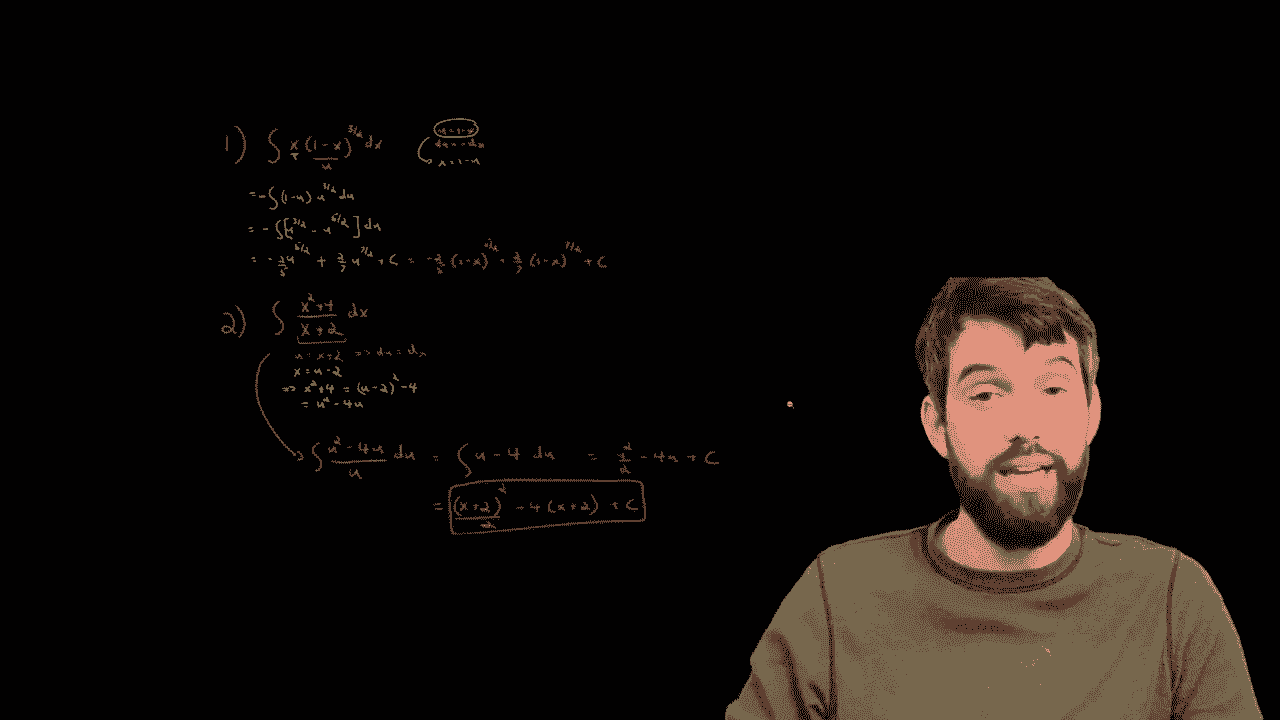 1) ∫ x (1-x)^{3/2} dx
u
u = 1-x
du = -dx
x = 1-u
= -∫ (1-u) u^{3/2} du
= -∫ [u^{3/2} - u^{5/2}] du
= -2/5 u^{5/2} + 2/7 u^{7/2} + C = -2/5 (1-x)^{5/2} + 2/7 (1-x)^{7/2} + C
2) ∫ (x²+4)/(x+2) dx
u = x+2 => du = dx
x = u-2
=> x²+4 = (u-2)² - 4
= u² - 4u
∫ (u² - 4u)/u du = ∫ u - 4 du = /2 - 4u + C
= (x+2)²/2 - 4(x+2) + C